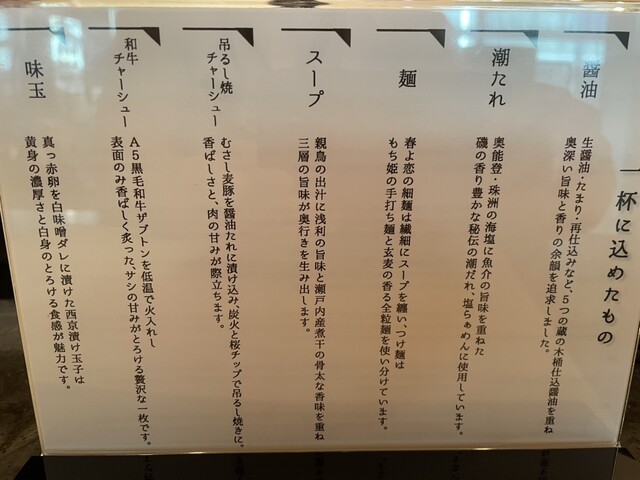 一杯に込めたもの
醤油
生醤油・たまり・再仕込みなど、5つの蔵の木桶仕込醤油を重ね
奥深い旨味と香りの余韻を追求しました。
潮たれ
奥能登・珠洲の海塩に魚介の旨味を重ねた
磯の香り豊かな秘伝の潮だれ。塩らぁめんに使用しています。
麺
春よ恋の細麺は繊細にスープを纏い、つけ麺は
もち姫の手打ち麺と玄麦の香る全粒麺を使い分けています。
スープ
親鳥の出汁に浅利の旨味と瀬戸内産煮干の骨太な香味を重ね
三層の旨味が奥行きを生み出します。
吊るし焼
チャーシュー
むさし麦豚を醤油たれに漬け込み、炭火と桜チップで吊るし焼きに。
香ばしさと、肉の甘みが際立ちます。
和牛
チャーシュー
A5黒毛和牛ザブトンを低温で火入れし
表面のみ香ばしく炙った、サシの甘みがとろける贅沢な一枚です。
味玉
真っ赤卵を白味噌ダレに漬けた西京漬け玉子は
黄身の濃厚さと白身のとろける食感が魅力です。